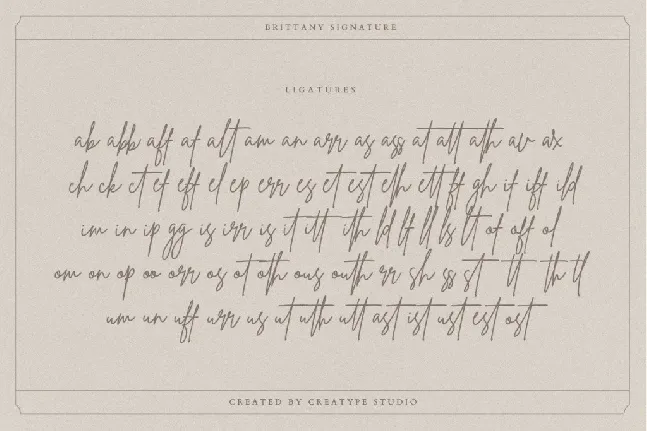 BRITTANY SIGNATURE
LIGATURES
ab abb aff af alt am an arr as ass at att ath av ax
ch ck ct ef eff el ep err es et est eth ett ft gh if ift ild
im in ip gg is irr is it itt ith ld lf ll ls lt of off ol
om on op oo orr os ot oth ous outh rr sh ss st tt th tl
um un uff urr us ut uth utt ast ist ust est ost
CREATED BY CREATYPE STUDIO